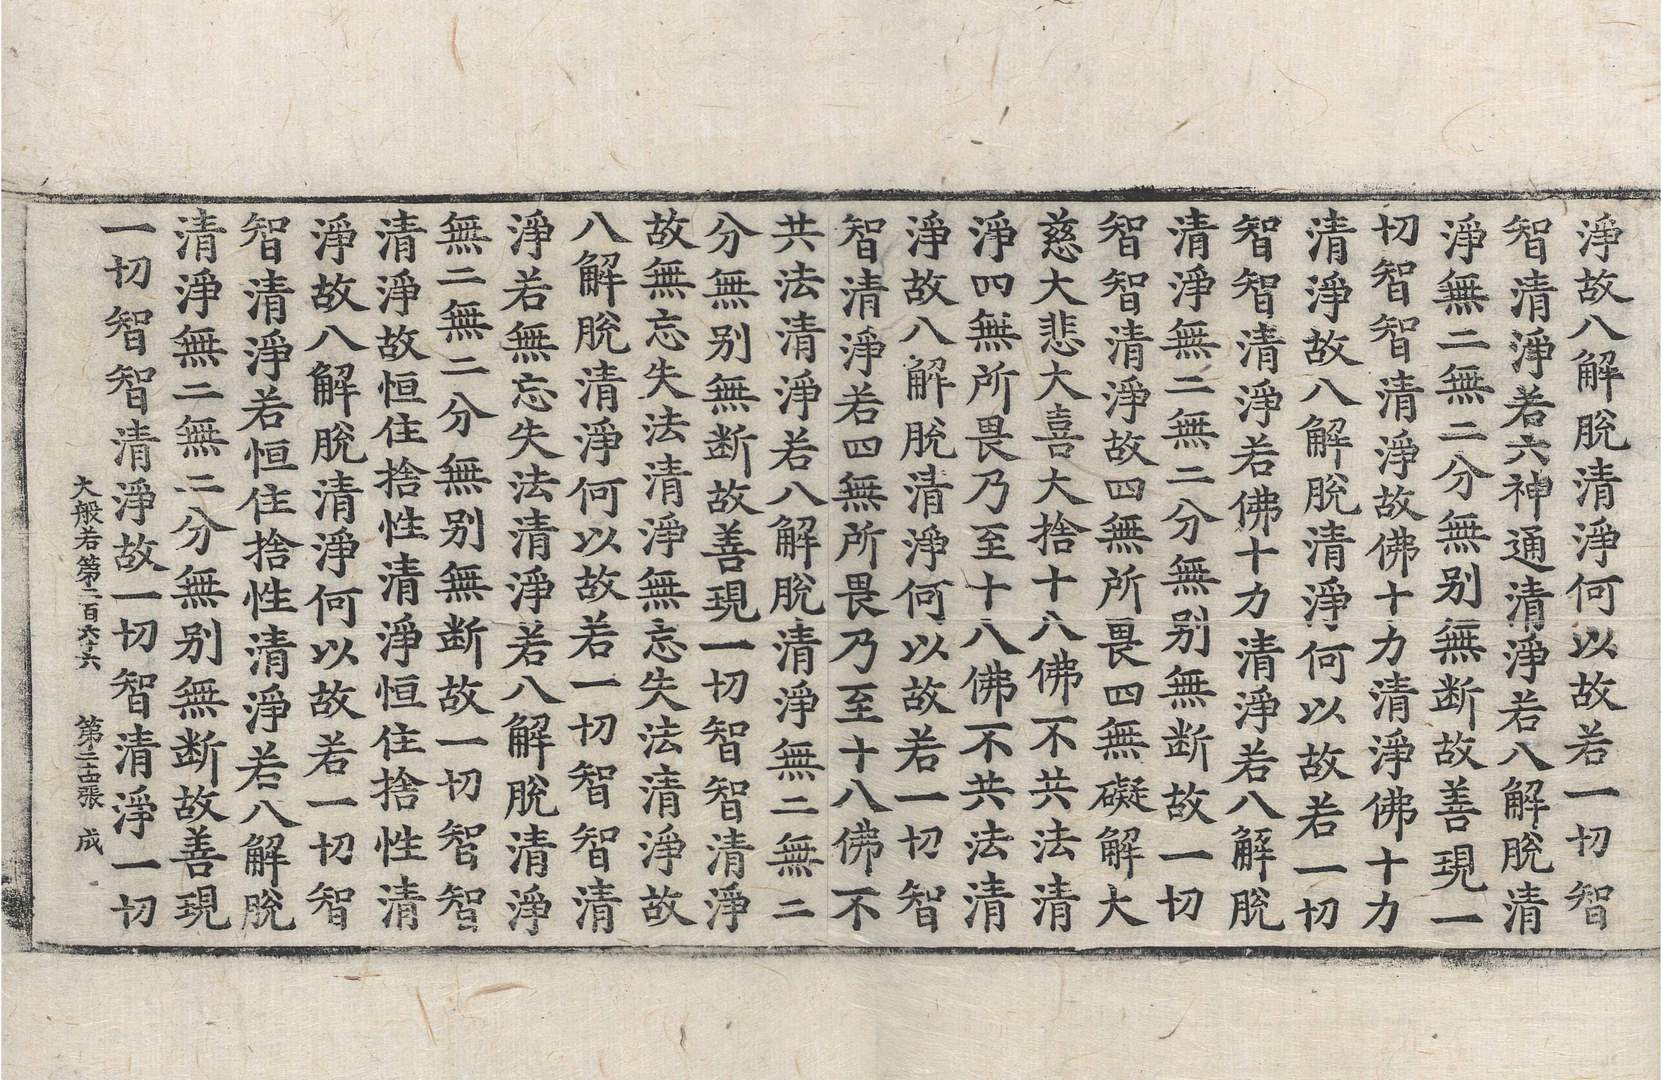 淨故八解脫清淨何以故若一切智
智清淨若六神通清淨若八解脫清
淨無二無二分無别無断故善現一
切智智清淨故佛十力清淨佛十力
清淨故八解脫清淨何以故若一切
智智清淨若佛十力清淨若八解脫
清淨無二無二分無别無断故一切
智智清淨故四無所畏四無礙解大
慈大悲大喜大捨十八佛不共法清
淨四無所畏乃至十八佛不共法清
淨故八解脫清淨何以故若一切智
智清淨若四無所畏乃至十八佛不
共法清淨若八解脫清淨無二無二
分無别無断故善現一切智智清淨
故無忘失法清淨無忘失法清淨故
八解脫清淨何以故若一切智智清
淨若無忘失法清淨若八解脫清淨
無二無二分無别無断故一切智智
清淨故恒住捨性清淨恒住捨性清
淨故八解脫清淨何以故若一切智
智清淨若恒住捨性清淨若八解脫
清淨無二無二分無别無断故善現
一切智智清淨故一切智清淨一切
大般若第二百六十六 第 張 成